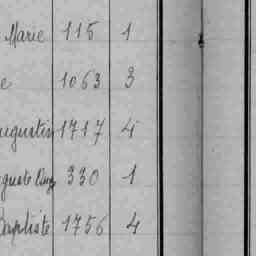 Marie 115 1
e 1063 3
ugustin 1717 4
guste 330 1
Baptiste 1756 4